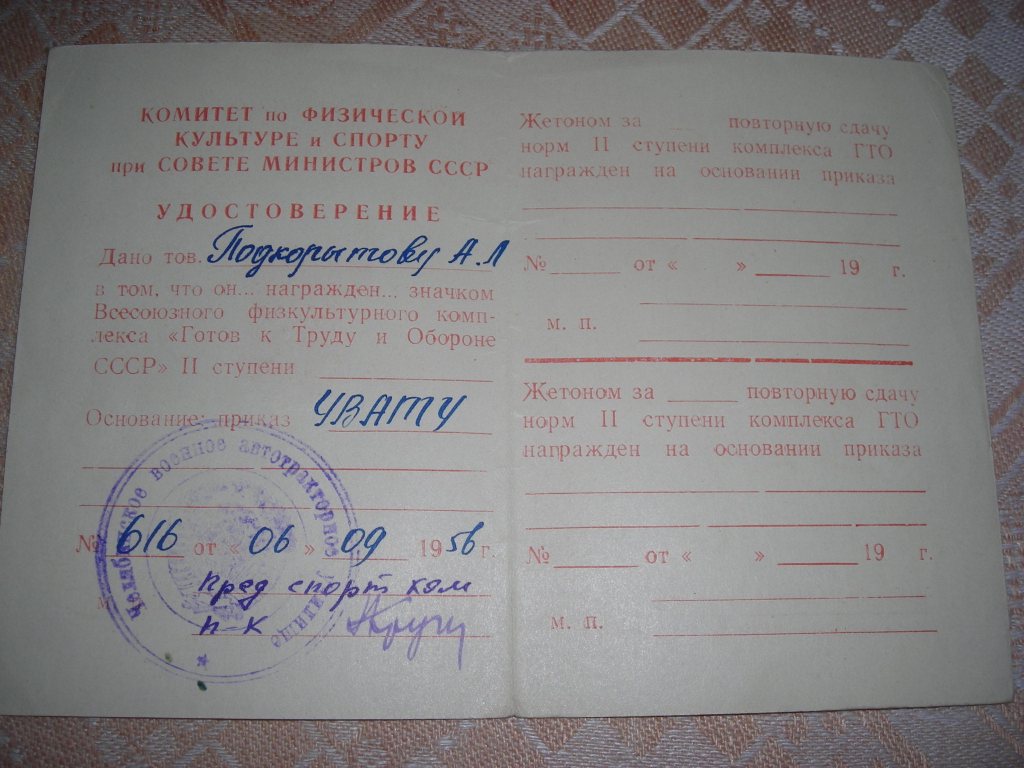 КОМИТЕТ по ФИЗИЧЕСКОЙ
КУЛЬТУРЕ и СПОРТУ
при СОВЕТЕ МИНИСТРОВ СССР
УДОСТОВЕРЕНИЕ
Дано тов. Подкорытову А.Л
в том, что он... награжден... значком
Всесоюзного физкультурного комп-
лекса «Готов к Труду и Обороне
СССР» II ступени
Основание: приказ ЧВАТУ
№ 616 от «06» 09 1956 г.
Пред спорт ком
п-к
Челябинское военное автотракторное училище
Жетоном за повторную сдачу
норм II ступени комплекса ГТО
награжден на основании приказа
№ от « » 19 г.
м. п.
Жетоном за повторную сдачу
норм II ступени комплекса ГТО
награжден на основании приказа
№ от « » 19 г.
м. п.